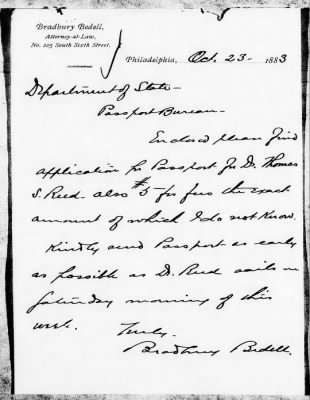 Bradbury Bedell,
Attorney-at-Law,
No. 225 South Sixth Street.
Philadelphia, Oct. 23- 1883
Department of State-
Passport Bureau-
Enclosed please find
application for Passport for Dr. Thomas
S. Reed- also $5 for fees the exact
amount of which I do not know.
Kindly send Passport as early
as possible as Dr. Reed sails on
Saturday morning of this
week.
Truly-
Bradbury Bedell.